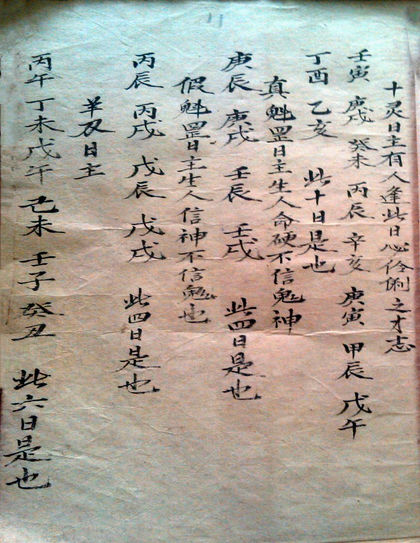 十灵日主有人逢此日心伶俐之才志
壬寅 庚戌 癸未 丙辰 辛亥 庚寅 甲辰 戊午
丁酉 乙亥 此十日是也
真魁罡日主生人命硬不信鬼神
庚辰 庚戌 壬辰 壬戌 此四日是也
假魁罡日主生人信神不信鬼也
丙辰 丙戌 戊辰 戊戌 此四日是也
羊刃日主
丙午 丁未 戊午 己未 壬子 癸丑 此六日是也